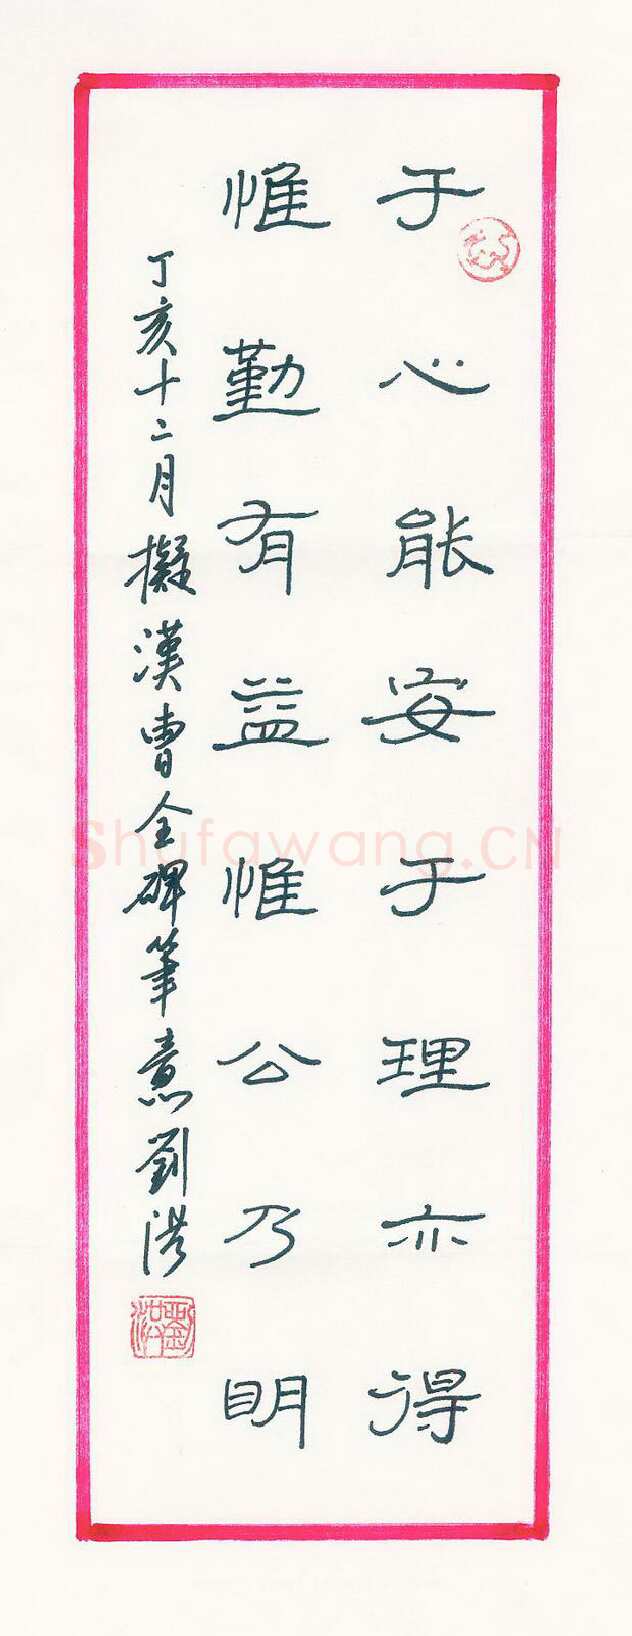 于心能安于理亦得
惟勤有益惟公乃明
丁亥十二月擬漢曹全碑筆意劉洪
劉洪
Shufawang.CN